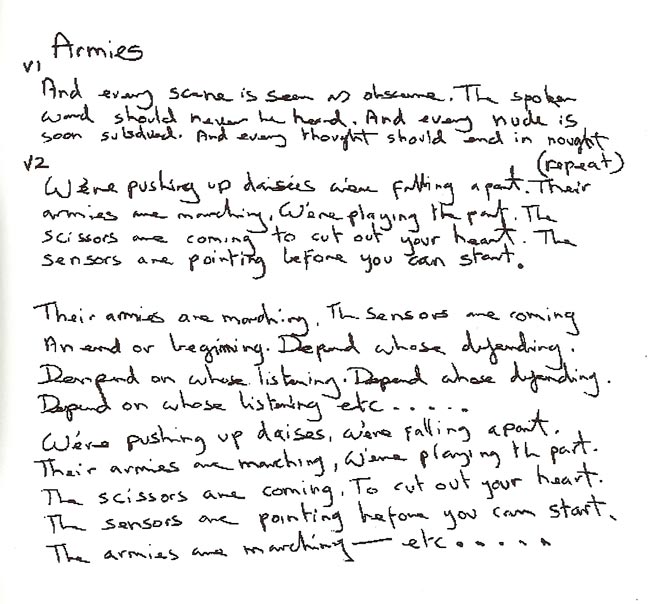 Armies
V1
And every scene is seen as obscene. The spoken
word should never be heard. And every nude is
soon subdued. And every thought should end in nought
(repeat)
V2
We're pushing up daisies we're falling apart. Their
armies are marching, We're playing the part. The
scissors are coming to cut out your heart. The
sensors are pointing before you can start.
Their armies are marching, The sensors are coming
An end or beginning. Depend whose defending.
Depend on whose listening. Depend whose defending.
Depend on whose listening etc.....
We're pushing up daises, we're falling apart.
Their armies are marching, We're playing the part.
The scissors are coming, To cut out your heart.
The sensors are pointing before you can start.
The armies are marching — etc.....